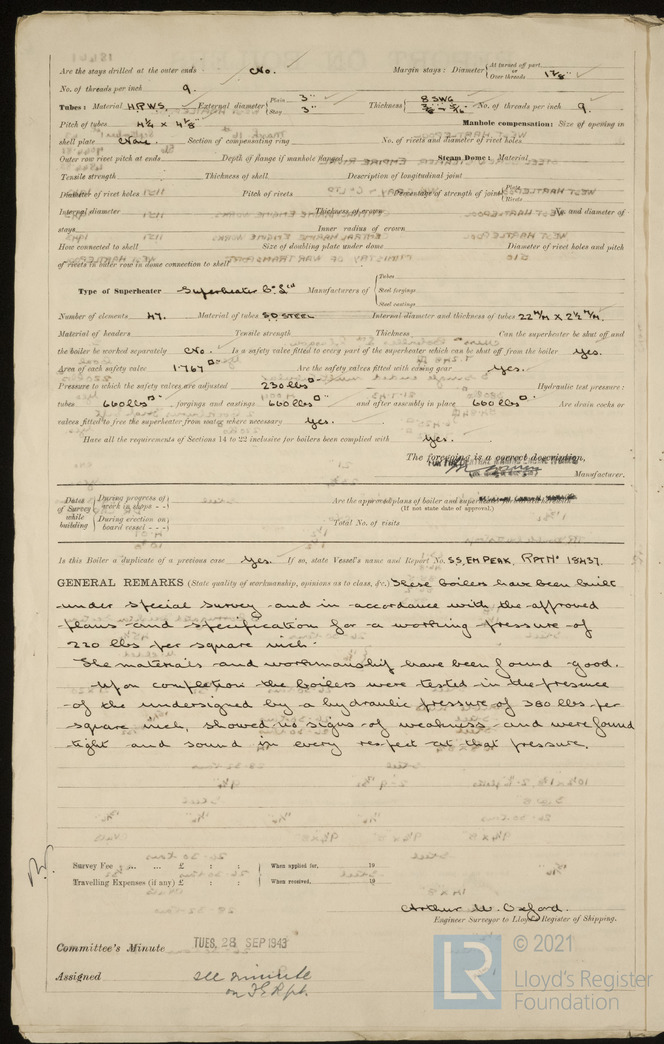 Are the stays drilled at the outer ends No. Margin stays: Diameter At turned off part or Over threads 1 7/8"
No. of threads per inch 9.
Tubes: Material H.R.W.S. External diameter Plain 3" Stay 3" Thickness 8 SWG No. of threads per inch 9.
Pitch of tubes 4 1/4 x 4 1/8" Manhole compensation: Size of opening in
shell plate None Section of compensating ring No. of rivets and diameter of rivet holes
Outer row rivet pitch at ends Depth of flange if manhole flanged Steam Dome: Material
Tensile strength Thickness of shell Description of longitudinal joint
Diameter of rivet holes Pitch of rivets Percentage of strength of joint Plate Rivets
Internal diameter Thickness of crown No. and diameter of
stays Inner radius of crown
How connected to shell Size of doubling plate under dome Diameter of rivet holes and pitch
of rivets in outer row in dome connection to shell
Type of Superheater Superheater Co Ltd Manufacturers of Tubes Steel forgings Steel castings
Number of elements 47. Material of tubes S.D. STEEL Internal diameter and thickness of tubes 22 M/M X 2 1/2 M/M.
Material of headers Tensile strength Thickness Can the superheater be shut off and
the boiler be worked separately No. Is a safety valve fitted to every part of the superheater which can be shut off from the boiler yes.
Area of each safety valve 1.767 □" Are the safety valves fitted with easing gear yes.
Pressure to which the safety valves are adjusted 230 lbs □" Hydraulic test pressure:
tubes 660 lbs □" forgings and castings 660 lbs □" and after assembly in place 660 lbs □" Are drain cocks or
valves fitted to free the superheater from water where necessary yes.
Have all the requirements of Sections 14 to 22 inclusive for boilers been complied with yes.
The foregoing is a correct description,
Manufacturer.
Dates of Survey while building During progress of work in shops - - During erection on board vessel - - -
Are the approved plans of boiler and superheater
(If not state date of approval.)
Total No. of visits
Is this Boiler a duplicate of a previous case Yes. If so, state Vessel's name and Report No. S.S. EMPEAK, RPT No 18437.
GENERAL REMARKS (State quality of workmanship, opinions as to class, &c.) These boilers have been built
under special survey and in accordance with the approved
plans and specification for a working pressure of
220 lbs per square inch.
The materials and workmanship have been found good.
Upon completion the boilers were tested in the presence
of the undersigned by a hydraulic pressure of 380 lbs per
square inch, showed no signs of weakness and were found
tight and sound in every respect at that pressure.
Survey Fee £ : : When applied for, 19
Travelling Expenses (if any) £ : : When received, 19
Arthur W. Oxford.
Engineer Surveyor to Lloyd's Register of Shipping.
Committee's Minute TUES. 28 SEP 1943
Assigned see minute
on F.E. Rpt.
LR © 2021
Lloyd's Register
Foundation